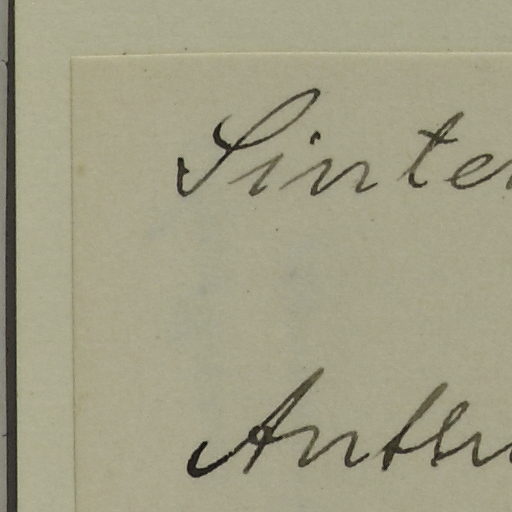 Sinte
Anth